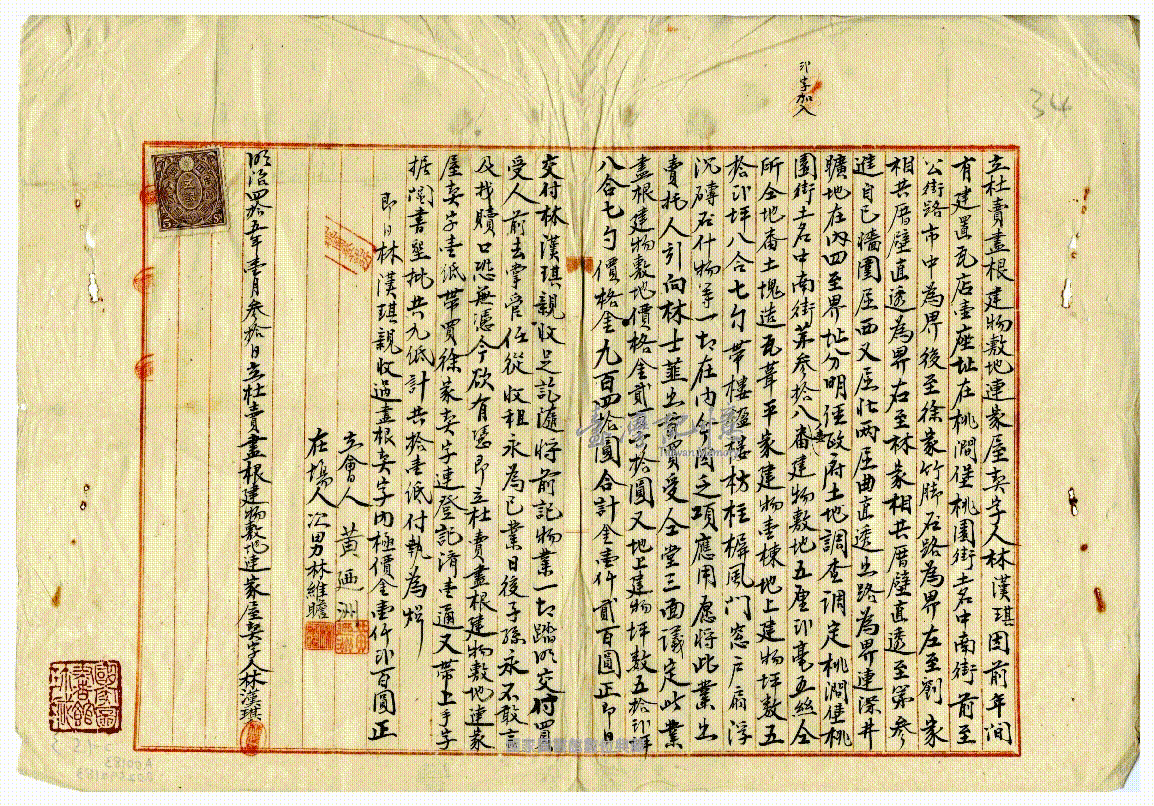 印字加入
34
立杜賣盡根建物敷地連家屋契字人林漢琪因前年間
有建置瓦店壹座址在桃澗堡桃園街土名中南街前至
公街路市中為界後至徐家竹脚石路為界左至劉家
相共厝壁直透為界右至林家相共厝壁直透至第參
進自己墻圍屋西又屋北兩屋曲直透出路為界連深井
曠地在內四至界址分明經政府土地調查調定桃澗堡桃
園街土名中南街第參拾八番建物敷地五厘卯毫五絲仝
所仝地番土塊造瓦葺平家建物壹棟地上建物坪數五
拾卯坪八合七勺帶樓楹樓枋柱樨風门窓户扇浮
沉磚石什物等一切在內今因乏項應用愿將此業出
賣托人引向林士韮出首買受仝堂三面議定此業
盡根建物敷地價格金貳百六拾圓又地上建物坪數五拾卯坪
八合七勺價格金九百四拾圓合計金壹仟貳百圓正即日
交付林漢琪親收足訖隨將前記物業一切踏明交付買
受人前去掌管任從收租永為己業日後子孫永不敢言
及找贖口恐無憑今欲有憑即立杜賣盡根建物敷地連家
屋契字壹紙帶買徐家契字連登記濟壹通又帶上手字
据鬮書墾批共九紙計共拾壹紙付執為炤
即日林漢琪親收過盡根契字內極價金壹仟卯百圓正
立會人 黃廼洲
在塲人次男林維瞻
明治四拾五年壹月參拾日立杜賣盡根建物敷地連家屋契字人林漢琪
臺灣記憶
Taiwan Memory
國家圖書館數位典藏